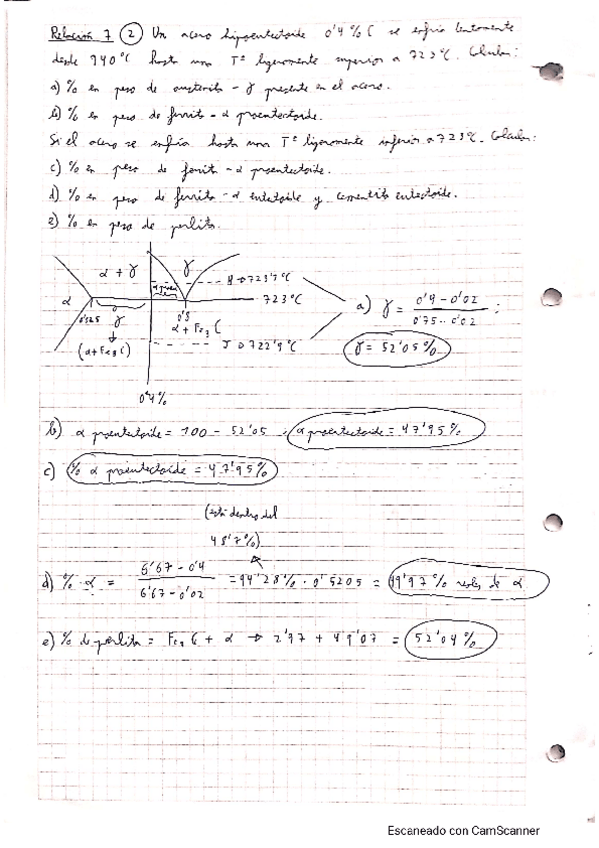 Relación 7 ② Un acero hipoeutectoide 0'4 % C se enfría lentamente
desde 940°C hasta una Tª ligeramente superior a 723°C. Calcular:
a) % en peso de austenita - γ presente en el acero.
b) % en peso de ferrita - α proeutectoide.
Si el acero se enfría hasta una Tª ligeramente inferior a 723°C. Calcular:
c) % en peso de ferrita - α proeutectoide.
d) % en peso de ferrita - α eutectoide y cementita eutectoide.
e) % en peso de perlita.
α + γ
γ
723'1°C
723°C
α
α + Fe3 C
722'9°C
γ
(α+Fe3 C)
0'4%
a) γ = 0'4 - 0'02 / 0'75 - 0'02 ;
γ = 52'05 %
b) α proeutectoide = 100 - 52'05 ; α proeutectoide = 47'95 %
c) % α proeutectoide = 47'95%
(está dentro del
48'7%)
d) % α = 6'67 - 0'4 / 6'67 - 0'02 = 94'28% · 0'5205 = % de α
e) % de perlita = Fe3 C + α → 2'97 + 49'07 = 52'04 %
Escaneado con CamScanner